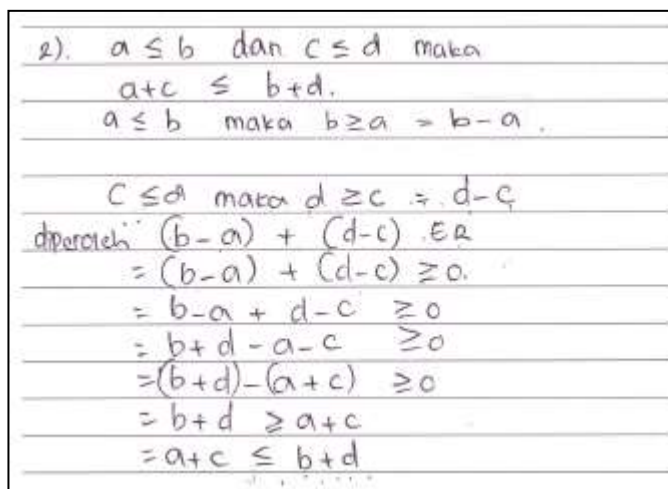 2). a ≤ b dan c ≤ d maka
a+c ≤ b+d.
a ≤ b maka b ≥ a = b-a.
C ≤ d maka d ≥ c = d-c
diperoleh (b-a) + (d-c) ER
= (b-a) + (d-c) ≥ 0.
= b-a + d-c ≥ 0
= b+d - a-c ≥ 0
= (b+d)-(a+c) ≥ 0
= b+d ≥ a+c
= a+c ≤ b+d